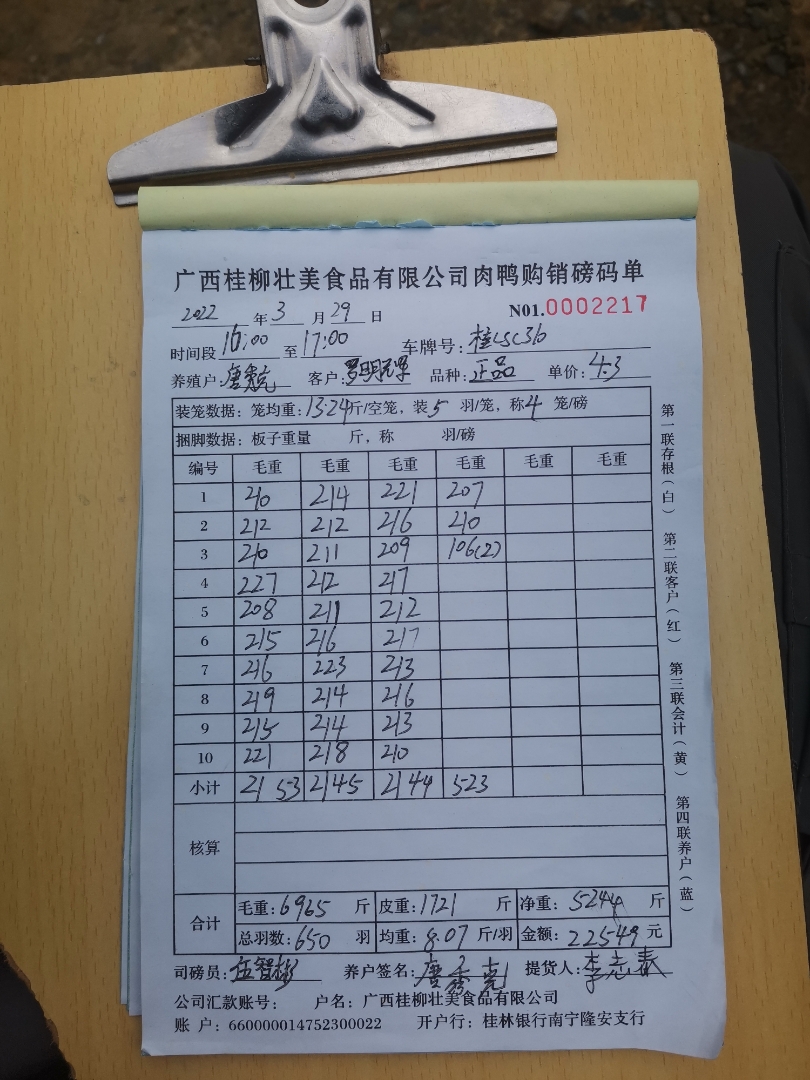 广西桂柳壮美食品有限公司肉鸭购销磅码单
2022 年 3 月 29 日 N01.0002217
时间段 16:00 至 17:00 车牌号:
养殖户: 唐秀克 客户: 品种: 正品 单价: 4.3
装笼数据: 笼均重: 13.24 斤/空笼, 装 5 羽/笼, 称 4 笼/磅
捆脚数据: 板子重量 斤, 称 羽/磅
编号 毛重 毛重 毛重 毛重 毛重 毛重
1 210 214 221 207
2 212 212 216 210
3 210 211 209 106(2)
4 227 212 217
5 208 211 212
6 215 216 217
7 216 223 213
8 219 214 216
9 215 214 213
10 221 218 210
小计 2153 2145 2144 523
核算
合计 毛重: 6965 斤 皮重: 1721 斤 净重: 5244 斤
总羽数: 650 羽 均重: 8.07 斤/羽 金额: 22549 元
司磅员: 伍智彬 养户签名: 唐秀克 提货人: 李志泰
公司汇款账号: 户名: 广西桂柳壮美食品有限公司
账 户: 660000014752300022 开户行: 桂林银行南宁隆安支行
第一联存根(白) 第二联客户(红) 第三联会计(黄) 第四联养户(蓝)